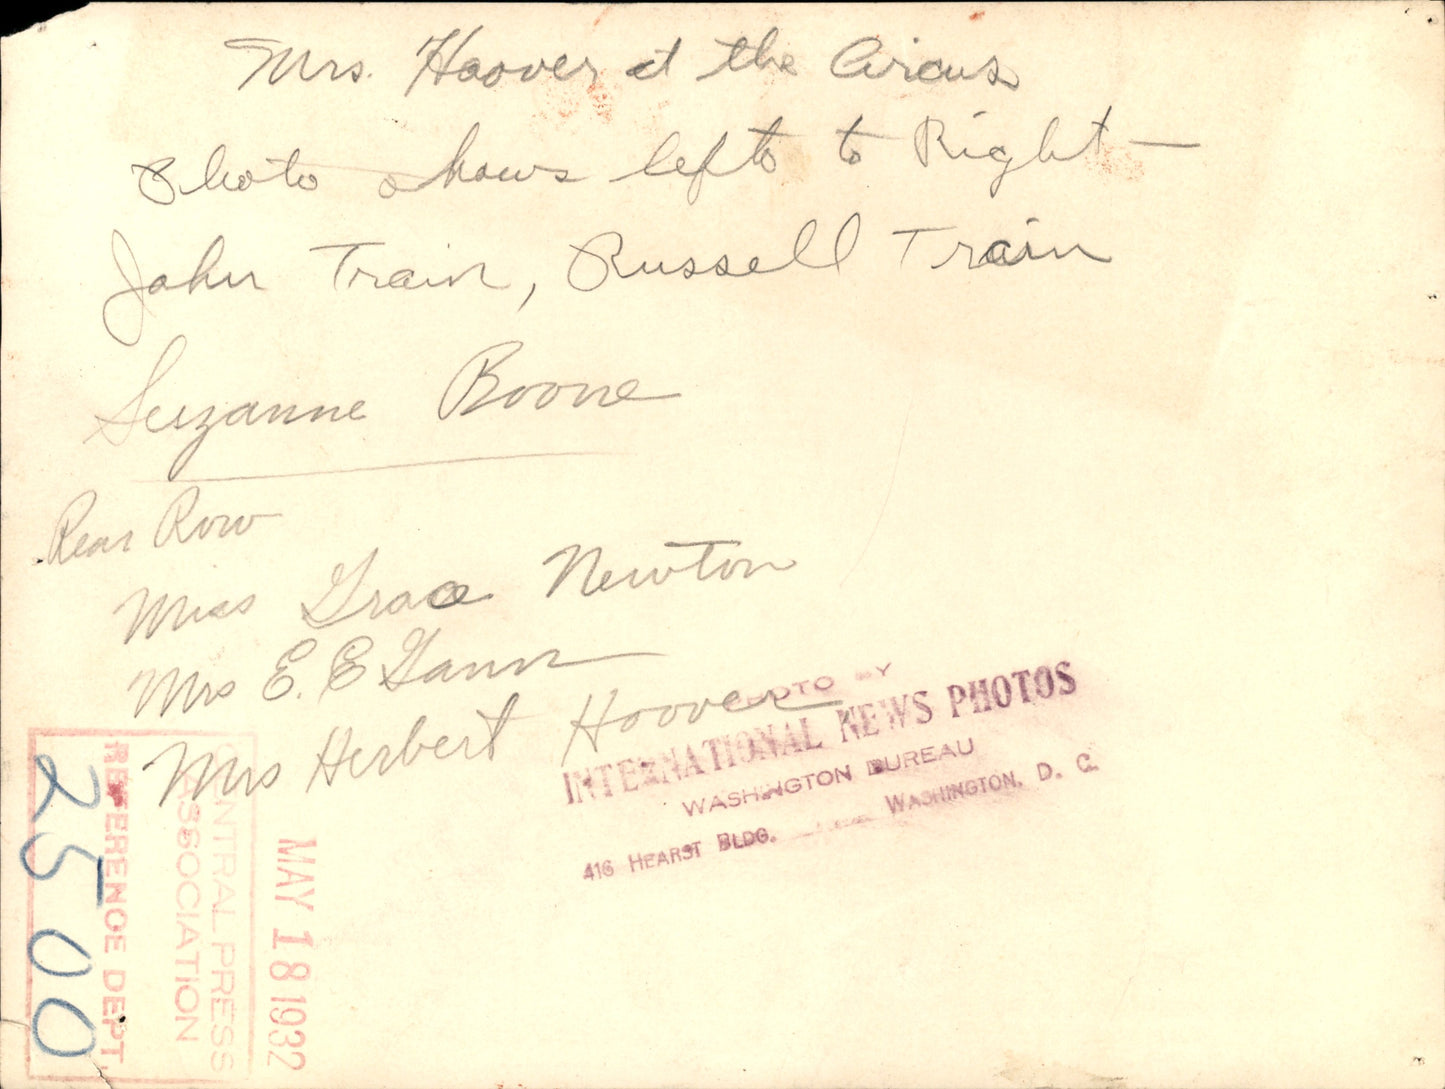 Mrs. Hoover at the Circus
Photo shows left to to Right —
John Train, Russell Train
Suzanne Boone
Rear Row
Miss Grace Newton
Mrs E. E Gann
Mrs Herbert Hoover
PHOTO BY
INTERNATIONAL NEWS PHOTOS
WASHINGTON BUREAU
416 HEARST BLDG. WASHINGTON, D. C.
MAY 18 1932
CENTRAL PRESS
ASSOCIATION
REFERENCE DEPT.
2500